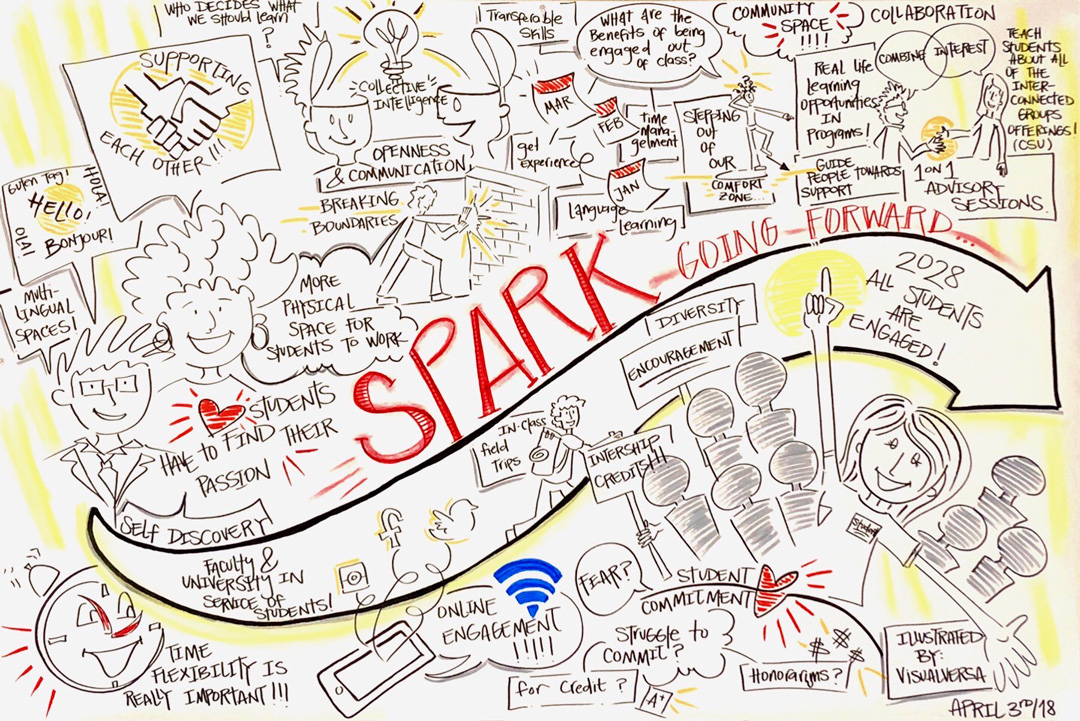 WHO DECIDES WHAT
WE SHOULD LEARN
?
SUPPORTING
EACH OTHER!!!
GUTEN TAG!
HOLA!
HELLO!
OLA!
BONJOUR!
MULTI-
LINGUAL
SPACES!
COLLECTIVE
INTELLIGENCE
OPENNESS
& COMMUNICATION
BREAKING
BOUNDARIES
MORE
PHYSICAL
SPACE FOR
STUDENTS TO WORK
Transferable
Skills
MAR
FEB
JAN
get
experience
time
mana-
gement
Language
learning
WHAT ARE THE
BENEFITS OF BEING
ENGAGED OUT
OF CLASS?
COMMUNITY
SPACE
!!!!
STEPPING
OUT
OF OUR
COMFORT
ZONE...
COLLABORATION
REAL LIFE
LEARNING
OPPORTUNITIES
IN
PROGRAMS!
COMBING
INTEREST
TEACH
STUDENTS
ABOUT ALL
OF THE
INTER-
CONNECTED
GROUPS
OFFERINGS!
(CSU)
GUIDE
PEOPLE TOWARDS
SUPPORT
1 ON 1
ADVISORY
SESSIONS.
SPARK GOING FORWARD...
2028
ALL STUDENTS
ARE
ENGAGED!
DIVERSITY
ENCOURAGEMENT
STUDENTS
HAVE TO FIND THEIR
PASSION
SELF DISCOVERY
FACULTY &
UNIVERSITY IN
SERVICE OF
STUDENTS!
IN-CLASS
field
TRIPS
INTERSHIP
CREDITS!!!
f
Student
TIME
FLEXIBILITY IS
REALLY IMPORTANT!!!
ONLINE
ENGAGEMENT
!!!!!
FEAR?
STUDENT
COMMITMENT
STRUGGLE TO
COMMIT?
for Credit?
A+
$ $ $ $
Honorariums?
ILLUSTRATED
BY:
VISUALVERSA
APRIL 3RD/18